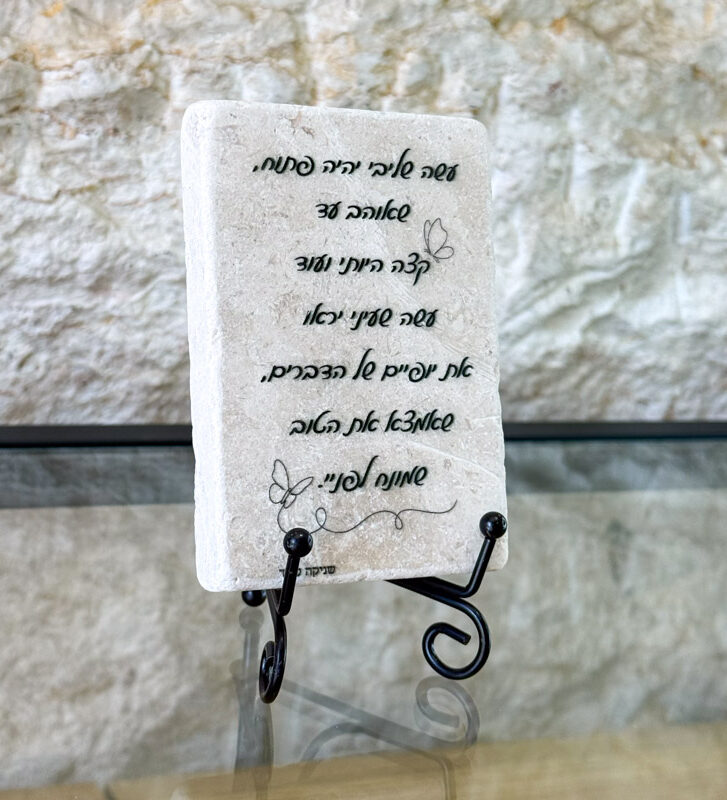 עשה שליבי יהיה פתוח,
שאוהב עד
קצה היותי ועוד
עשה שעיני יראו
את יופיים של הדברים,
שאמצא את הטוב
שמונח לפניי.
שניקה